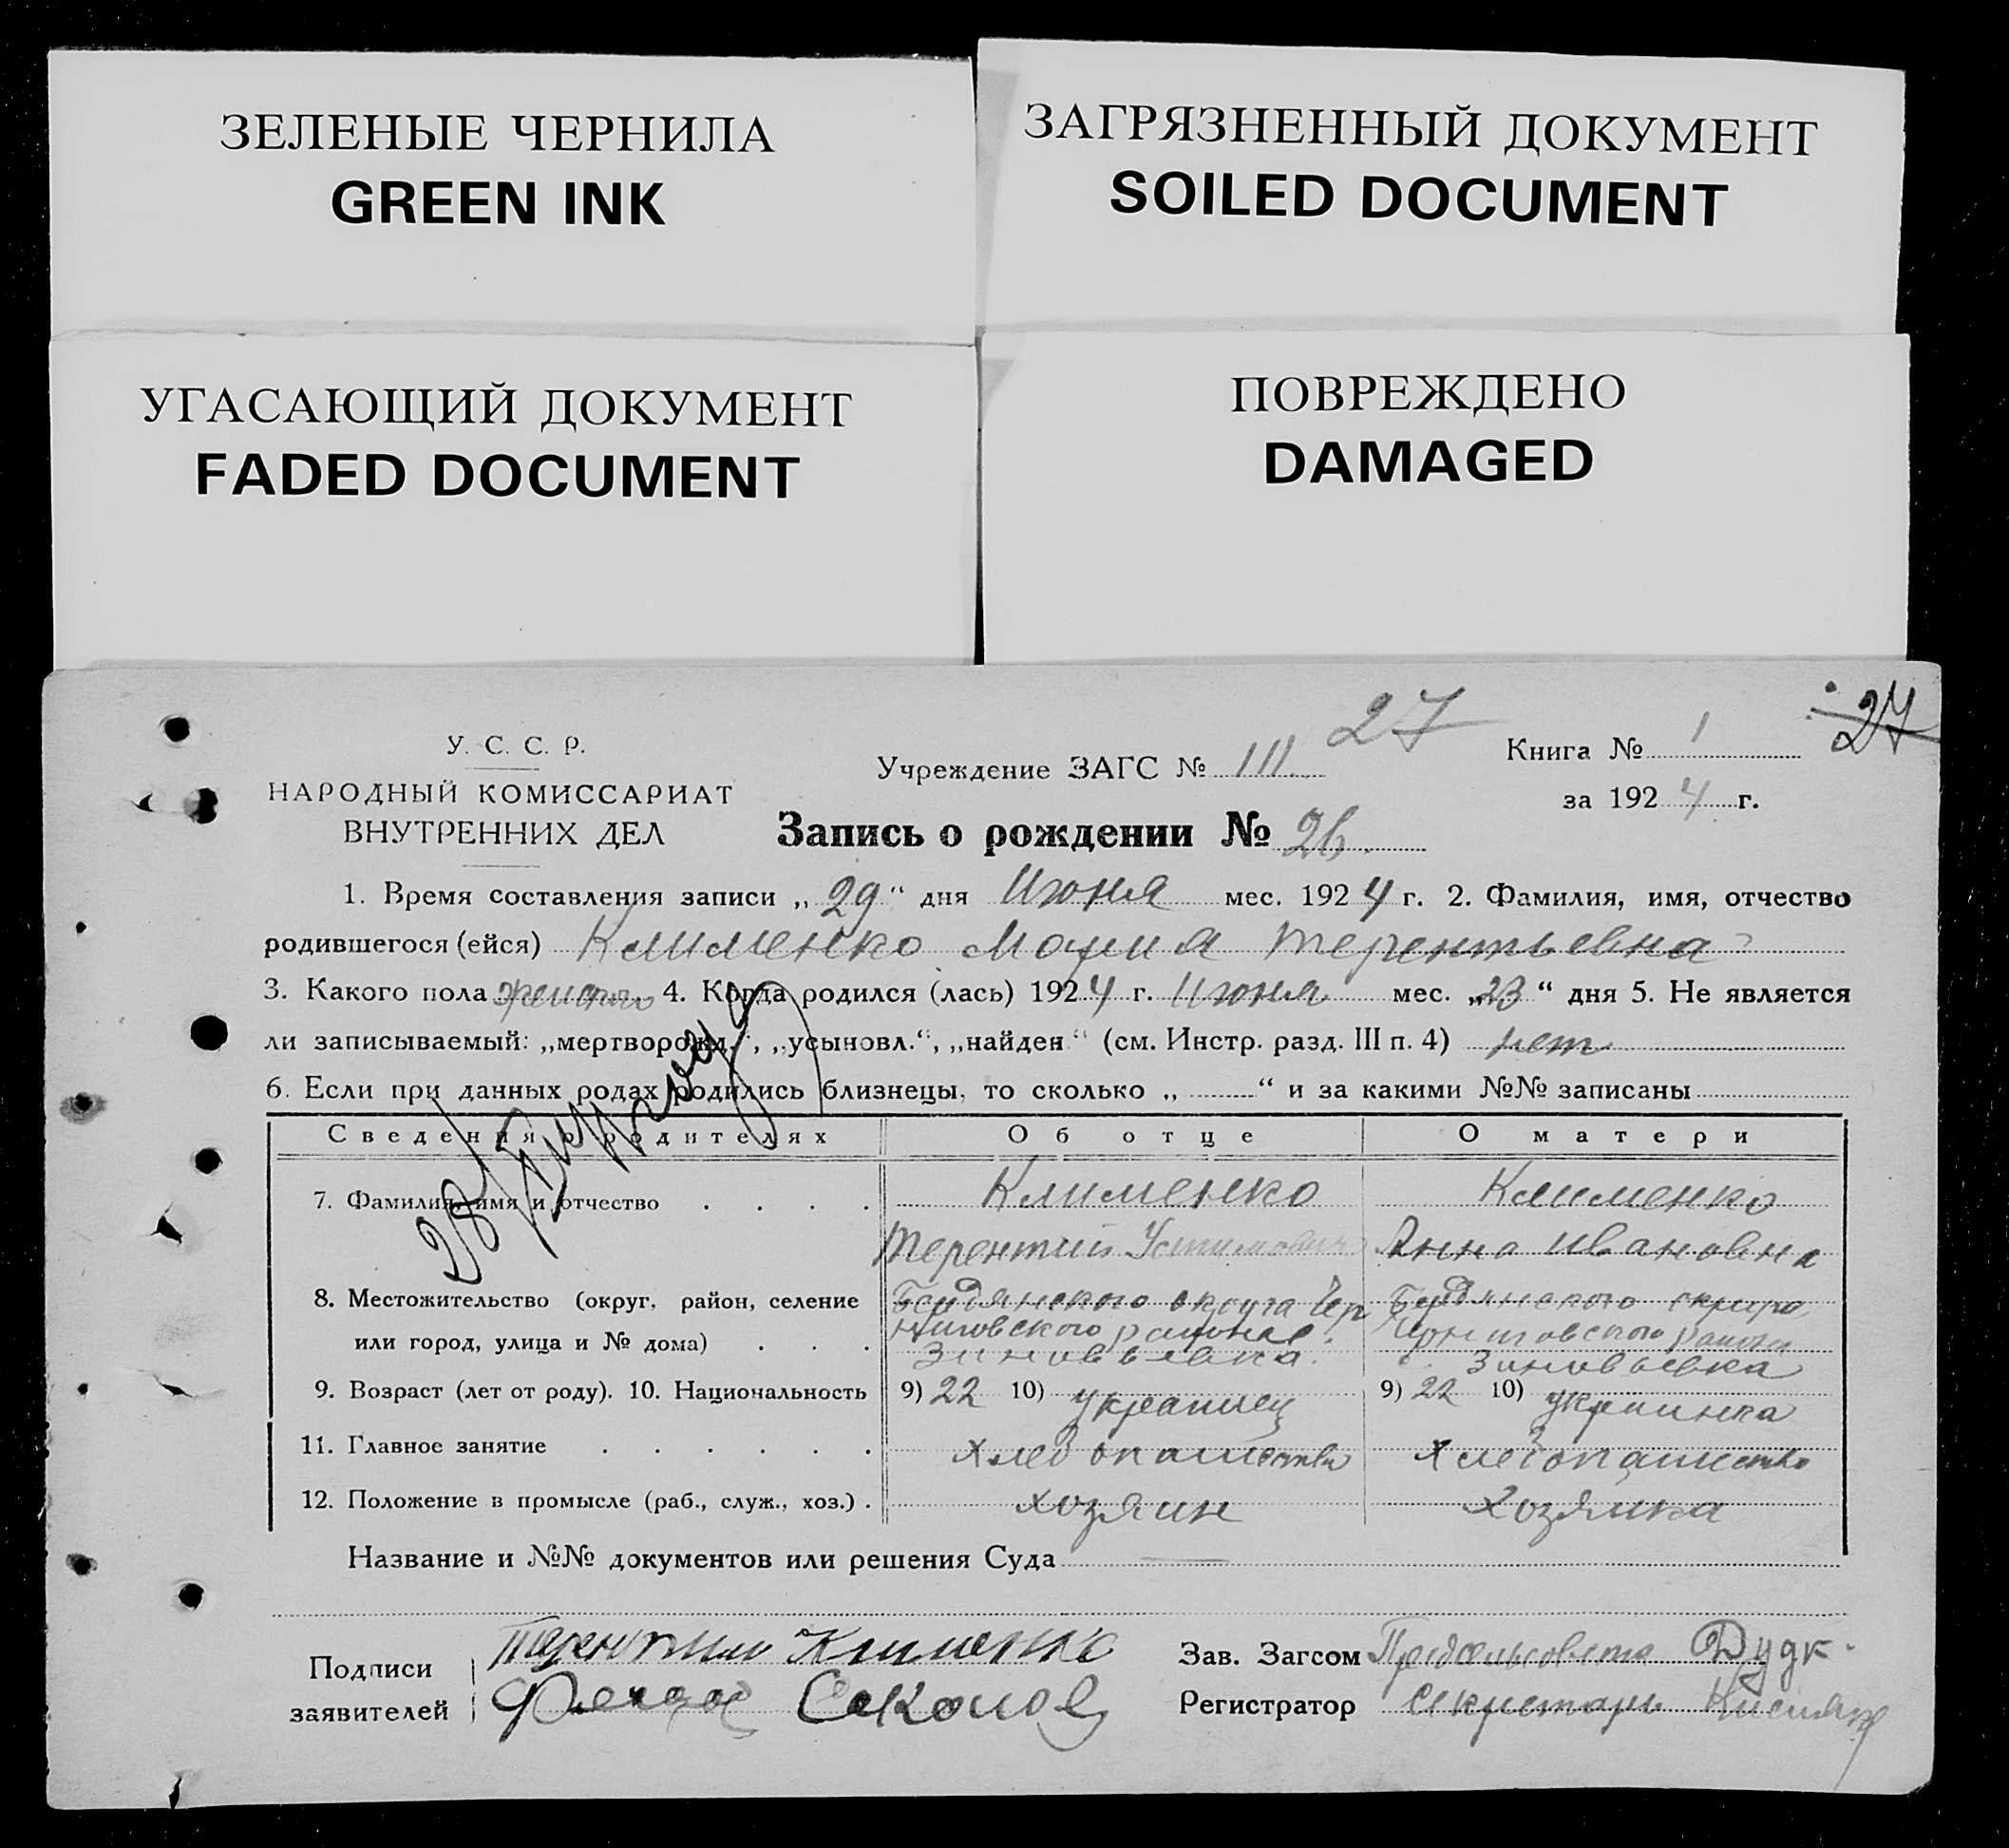 ЗЕЛЕНЫЕ ЧЕРНИЛА
GREEN INK
ЗАГРЯЗНЕННЫЙ ДОКУМЕНТ
SOILED DOCUMENT
УГАСАЮЩИЙ ДОКУМЕНТ
FADED DOCUMENT
ПОВРЕЖДЕНО
DAMAGED
27
27
У. С. С. Р.
НАРОДНЫЙ КОМИССАРИАТ
ВНУТРЕННИХ ДЕЛ
Учреждение ЗАГС № 111
Книга № 1
за 1924 г.
Запись о рождении № 26
1. Время составления записи „29“ дня Июня мес. 1924 г. 2. Фамилия, имя, отчество
родившегося (ейся) Клименко Мария Терентьевна
3. Какого пола 4. Когда родился (лась) 1924 г. Июня мес. „23“ дня 5. Не является
ли записываемый: „мертворожд.“, „усыновл.“, „найден“ (см. Инстр. разд. III п. 4) нет
6. Если при данных родах родились близнецы, то сколько „ “ и за какими №№ записаны
Сведения о родителях Об отце О матери
7. Фамилия, имя и отчество Клименко Клименко
Терентий Устимович Анна Ивановна
8. Местожительство (округ, район, селение округа Чер
или город, улица и № дома) ниговского Черниговского района
Зиновьевка Зиновьевка
9. Возраст (лет от роду). 10. Национальность 9) 22 10) украинец 9) 22 10) украинка
11. Главное занятие Хлебопашество Хлебопашество
12. Положение в промысле (раб., служ., хоз.) хозяин Хозяйка
Название и №№ документов или решения Суда
Подписи Терентий Клименко
заявителей
Зав. Загсом Дудк
Регистратор Секретарь